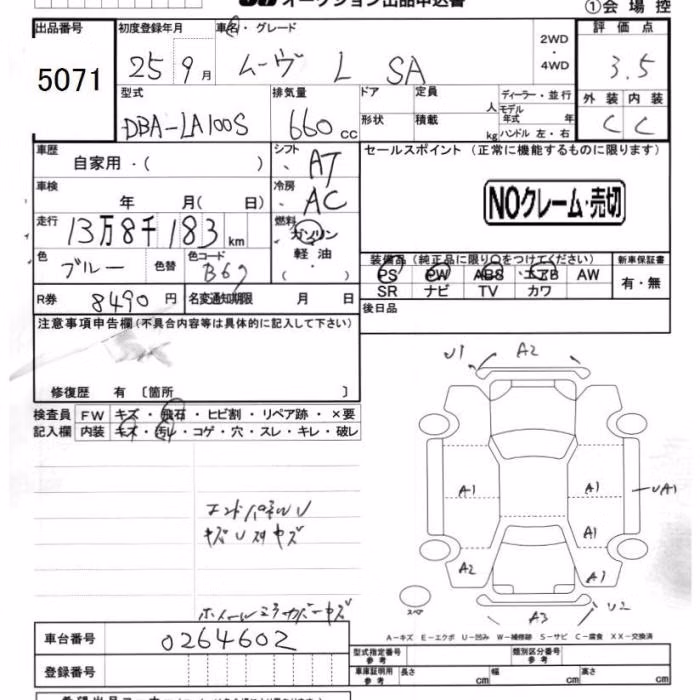 オークション出品申込書
①会場控
出品番号 初度登録年月 車名・グレード 2WD・4WD 評価点
5071 25 9月 ムーヴ L SA 3.5
型式 排気量 ドア 定員 人 ディーラー・並行 外装 内装
DBA-LA100S 660cc 形状 積載 kg モデル年式 年 ハンドル 左・右 C C
車歴 自家用・( ) シフト AT セールスポイント (正常に機能するものに限ります)
車検 年 月(日) 冷房 AC NOクレーム・売切
走行 13万8千183km 燃料 ガソリン
軽油
・( )
色 ブルー 色替 色コード B69 装備品(純正品に限り○をつけてください) 新車保証書
PS PW ABS エアB AW 有・無
SR ナビ TV カワ
R券 8490円 名変通知期限 月 日 後日品
注意事項申告欄(不具合内容等は具体的に記入して下さい)
修復歴 有 〔箇所 〕
検査員 FW キズ・飛石・ヒビ割・リペア跡・×要
記入欄 内装 キズ・汚レ・コゲ・穴・スレ・キレ・破レ
U1 A2
A1 A1 UA1
A1
A2 A1
A3 U2
スペア
エンドパネルU
キズU スリキズ
ホイールミラーカバーキズ
A-キズ E-エクボ U-凹み W-補修跡 S-サビ C-腐食 XX-交換済
車台番号 0264602
型式指定番号 参考 類別区分番号 参考
登録番号 車庫証明用 参考 長さ cm 幅 cm 高さ cm